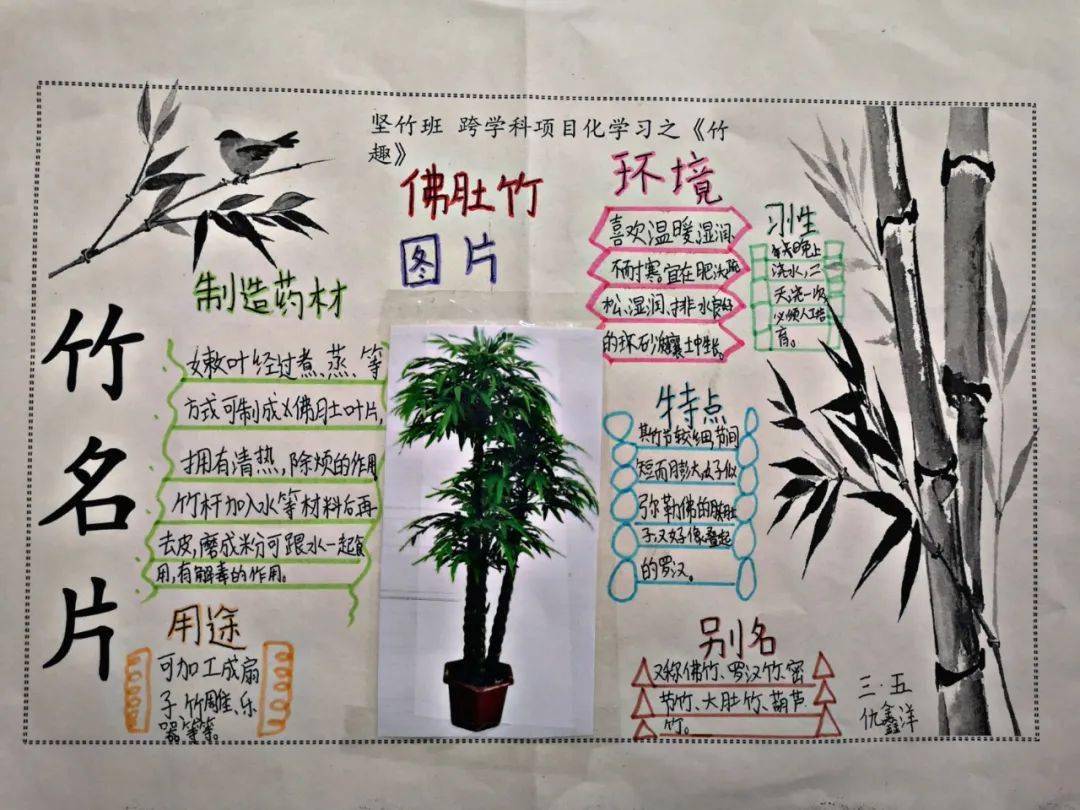 坚竹班 跨学科项目化学习之《竹
趣》
竹名片
佛肚竹
图片
制造药材
嫩叶经过煮、蒸、等
方式可制成以佛肚叶片,
拥有清热,除烦的作用
竹杆加入水等材料后再
去皮,磨成粉可跟水一起食
用,有解毒的作用。
用途
可加工成扇
子、竹雕、乐
器等等。
环境
喜欢温暖、湿润
不耐寒。宜在肥沃、疏
松、湿润、排水良好
的环砂壤土中生长。
习性
每天晚上
浇水,二
天浇一次
必须人工培
育。
特点
其竹节较细,节间
短而膨大,肚子似
弥勒佛的
子,又好像叠起
的罗汉。
别名
又称佛竹、罗汉竹、密
节竹、大肚竹、葫芦
竹。
三.五
仇鑫洋